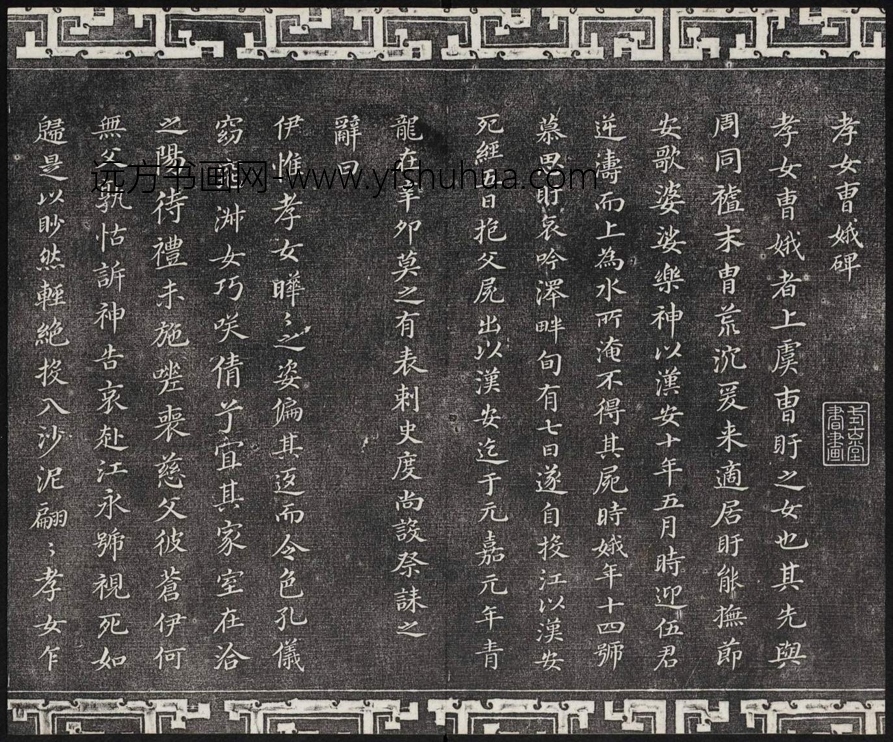 孝女曹娥碑
孝女曹娥者上虞曹盱之女也其先與
周同禮末胄荒沉爰来適居盱能撫節
安歌婆娑樂神以漢安十年五月時迎伍君
逆濤而上為水所淹不得其屍時娥年十四號
慕思盱哀吟澤畔旬有七日遂自投江以漢安
死經五日抱父屍出以漢安迄于元嘉元年青
龍在辛卯莫之有表刺史度尚設祭誄之
辭曰
伊惟孝女曄〻之姿偏其返而令色孔儀
窈窕淑女巧咲倩兮宜其家室在洽
之陽待禮未施嗟喪慈父彼蒼伊何
無父孰怙訴神告哀赴江永號視死如
歸是以眇然輕絕投入沙泥翩〻孝女乍
远方书画网-www.yfshuhua.com